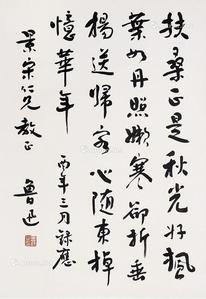 扶桑正是秋光好楓
葉如丹照嫩寒卻折垂
楊送歸客心隨東棹
憶華年
丙年三月録應
景宋仁兄教正
魯迅